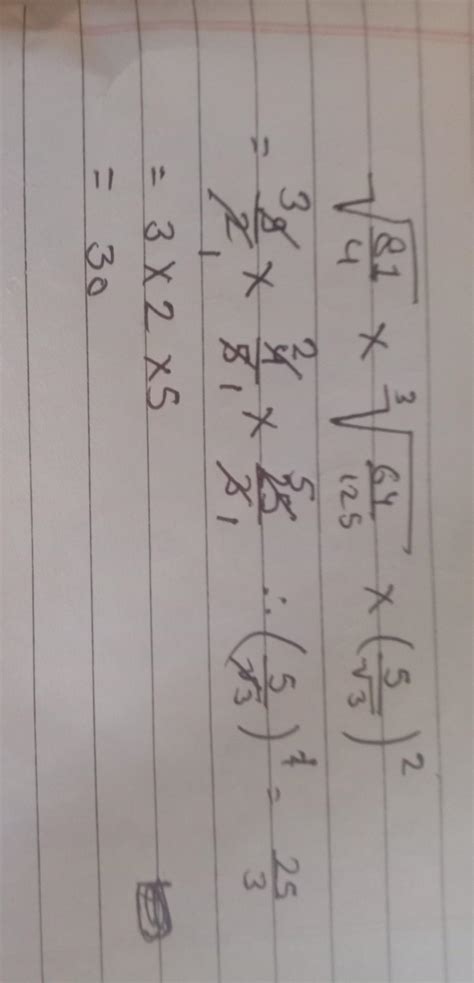 √81/4 × ³√64/125 × (5/√3)²
= ³9/2₁ × ²4/5₁ × ⁵25/3₁ ∴ (5/√3)² = 25/3
= 3 × 2 × 5
= 30